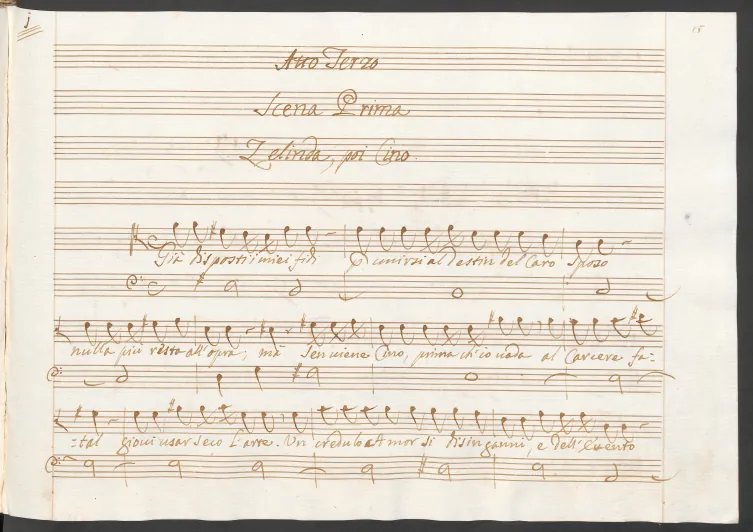 j
15
Atto Terzo
Scena Prima
Zelinda, poi Cino.
Già disposti i miei fidi e unirsi al destin del Caro Sposo
nulla più resta all'opra; mà sen viene Cino, prima ch'io vada al Carcere fa=
=tal giovi usar seco L'arte. Un credulo Amor si disinganni, e dell'Evento